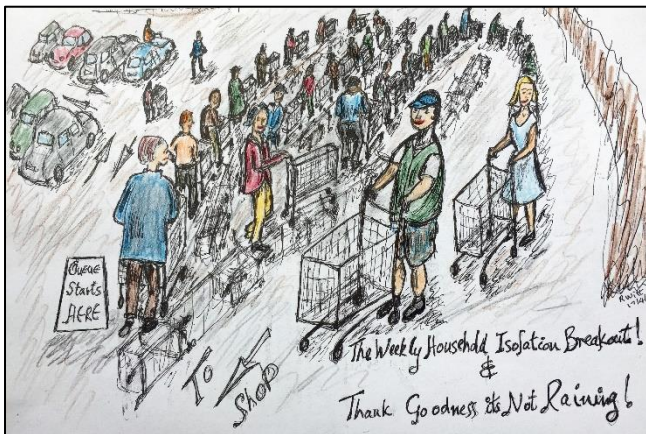 Queue
Starts
HERE
To
Shop
The Weekly Household Isolation Breakout!
&
Thank Goodness its Not Raining!